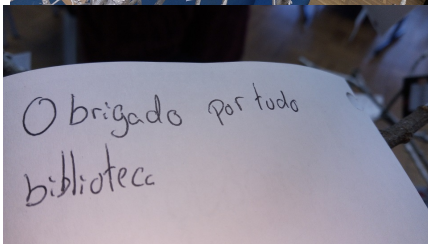 Obrigado por tudo
biblioteca